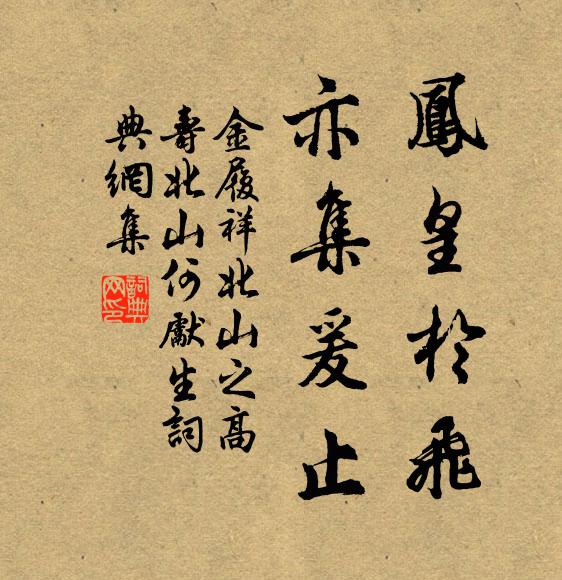 鳳皇於飛
亦集爰止
金履祥北山之高
壽北山何獻生詞
典網集
詞典
网印